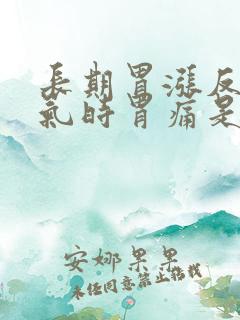 長期胃漲反
氣時胃痛是
安娜果果
未任同意禁止偷栽